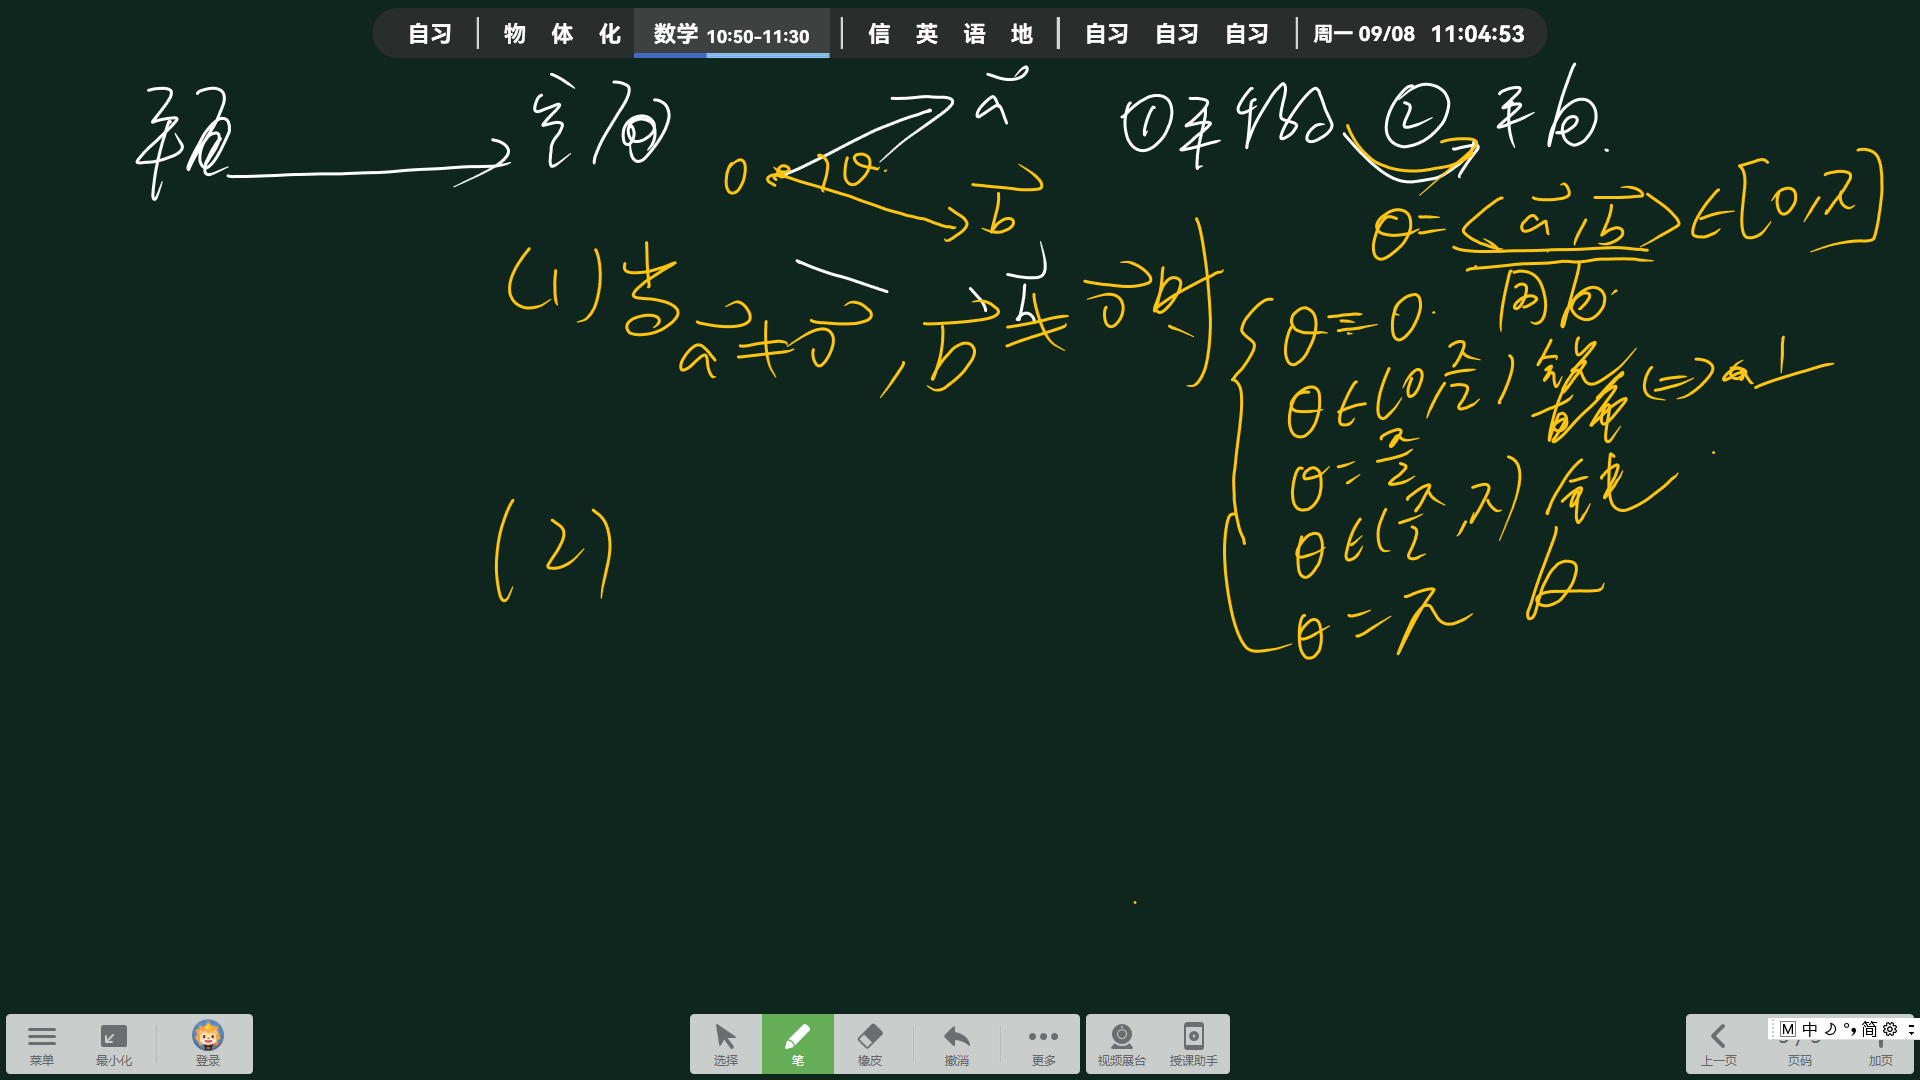 自习 | 物 体 化 数学 10:50-11:30 | 信 英 语 地 | 自习 自习 自习 | 周一 09/08 11:04:53
平面 → 空间
a
①平移 ②平面.
0 θ.
b
θ=<a,b>∈[0,π]
(1)当
a≠0,b≠0时
b
同向.
θ=0.
θ∈(0,π/2)锐
直角(=)⊥
θ=π/2
θ∈(π/2,π)钝
θ=π
反
(2)
菜单 最小化 登录
选择 笔 橡皮 撤消 更多
视频展台 授课助手
M 中 简
上一页 页码 加页